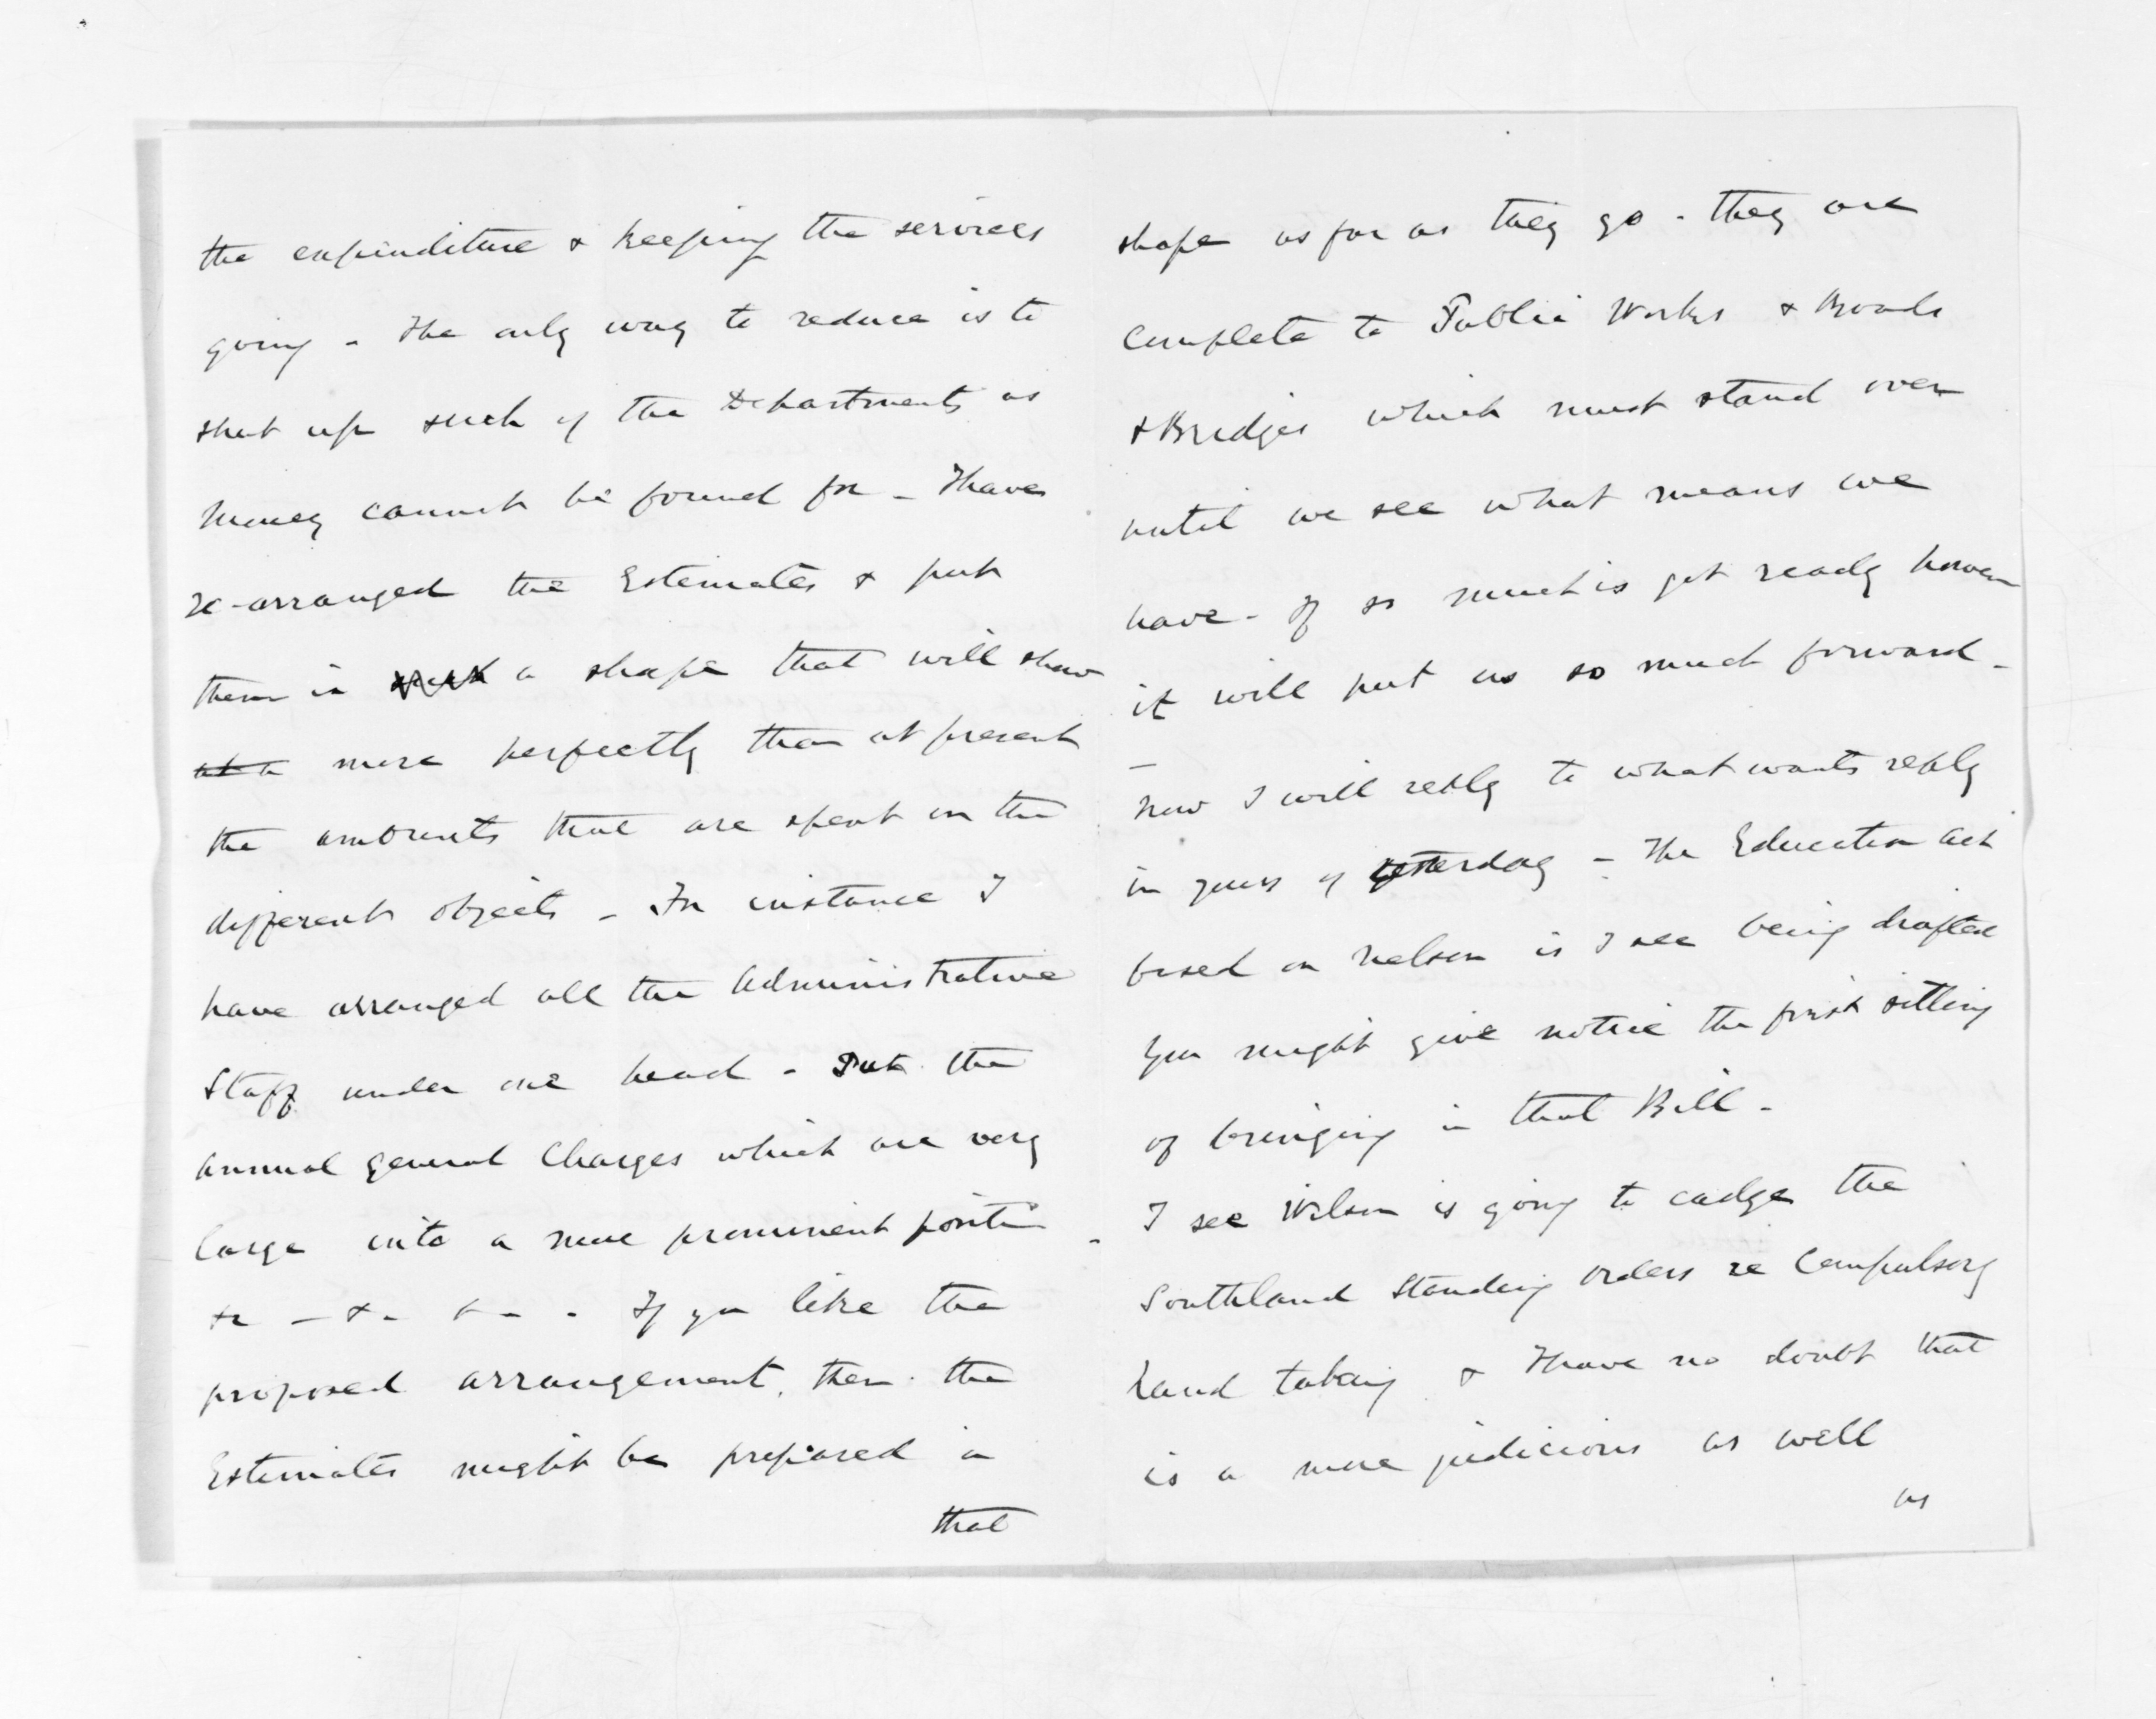 the expenditure & keeping the services
going - The only way to reduce is to
shut up such of the Departments as
money cannot be found for - I have
re-arranged the Estimates & put
them in such a shape that will show
at a more perfectly than at present
the amounts that are spent on the
different objects - For instance I
have arranged all the Administrative
Staff under one head - Put the
annual general Charges which are very
large into a more prominent position -
&c - &c - If you like the
proposed arrangement, then the
Estimates might be prepared in
that
shape as far as they go - they are
complete to Public Works & Roads
& Bridges which must stand over
until we see what means we
have - If so much is got ready however
it will put us so much forward -
- Now I will reply to what wants reply
in yours of yesterday - The Education Act
based on Nelson is I see being drafted
You might give notice the first sitting
of bringing in that Bill -
I see Wilson is going to cadge the
Southland Standing orders re Compulsory
land taking & I have no doubt that
is a more judicious as well
as